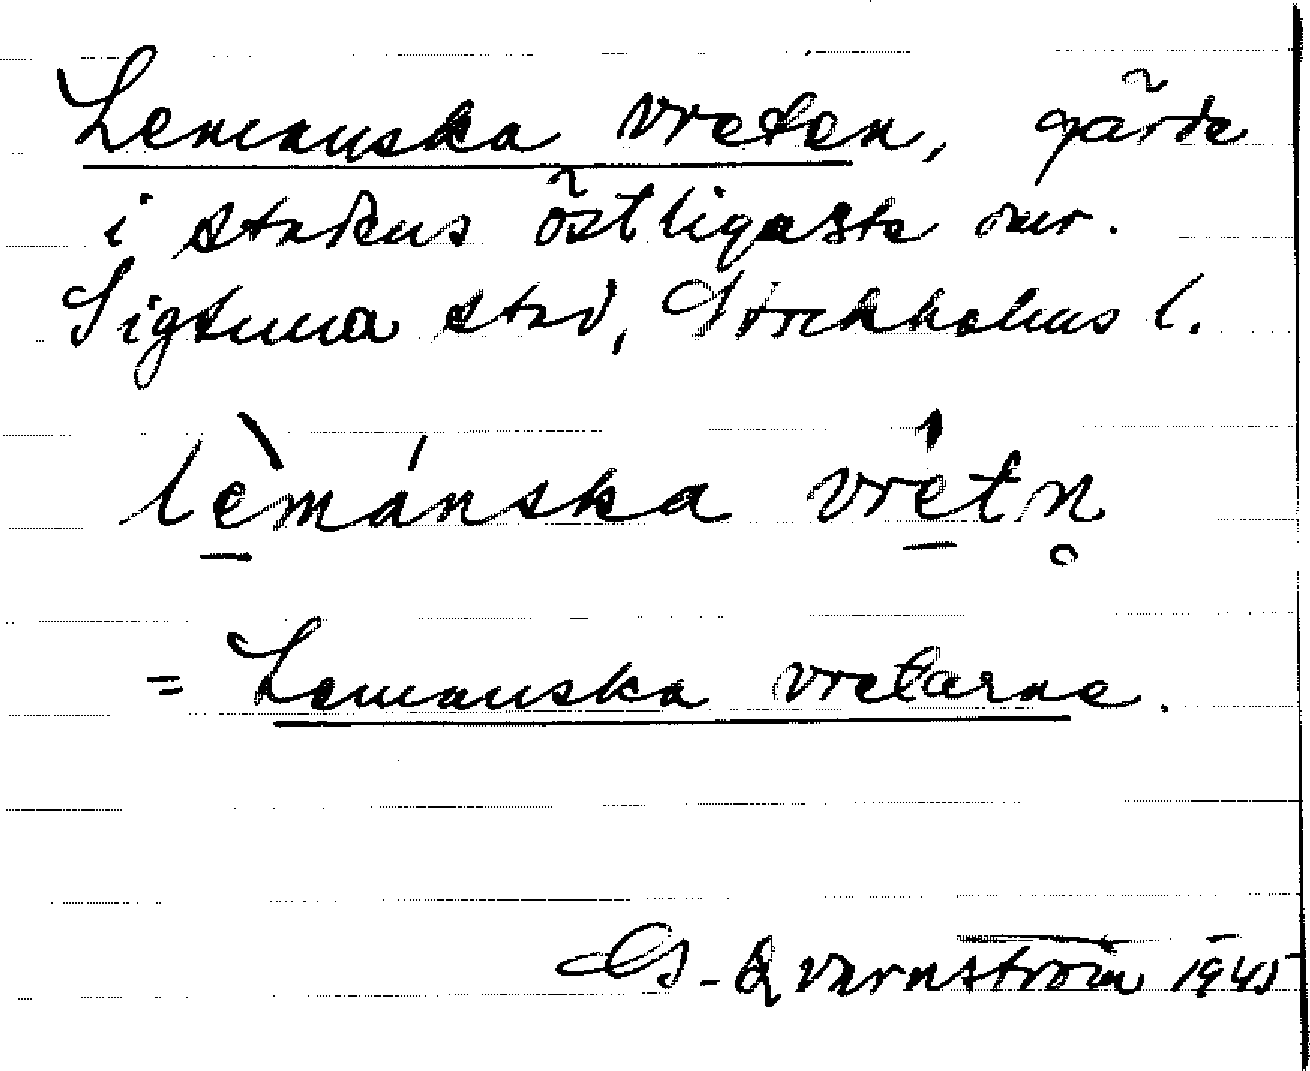 Lemanska vreten, gärde
i stadens östligaste omr.
Sigtuna stad, Stockholms l.
lè̱mánska vré̱tn̥
= Lemanska vretarne.
G. Qvarnström 1945